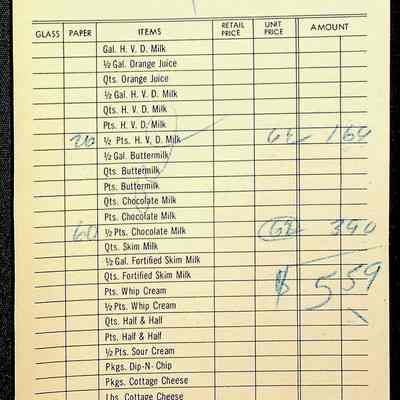 GLASS PAPER ITEMS RETAIL PRICE UNIT PRICE AMOUNT
Gal. H. V. D. Milk
½ Gal. Orange Juice
Qts. Orange Juice
½ Gal. H. V. D. Milk
Qts. H. V. D. Milk
Pts. H. V. D. Milk
½ Pts. H. V. D. Milk
½ Gal. Buttermilk
Qts. Buttermilk
Pts. Buttermilk
Qts. Chocolate Milk
Pts. Chocolate Milk
60 ½ Pts. Chocolate Milk 390
Qts. Skim Milk
½ Gal. Fortified Skim Milk
Qts. Fortified Skim Milk
Pts. Whip Cream
$ 5 59
½ Pts. Whip Cream
Qts. Half & Half
Pts. Half & Half
½ Pts. Sour Cream
Pkgs. Dip-N-Chip
Pkgs. Cottage Cheese
Lbs. Cottage Cheese